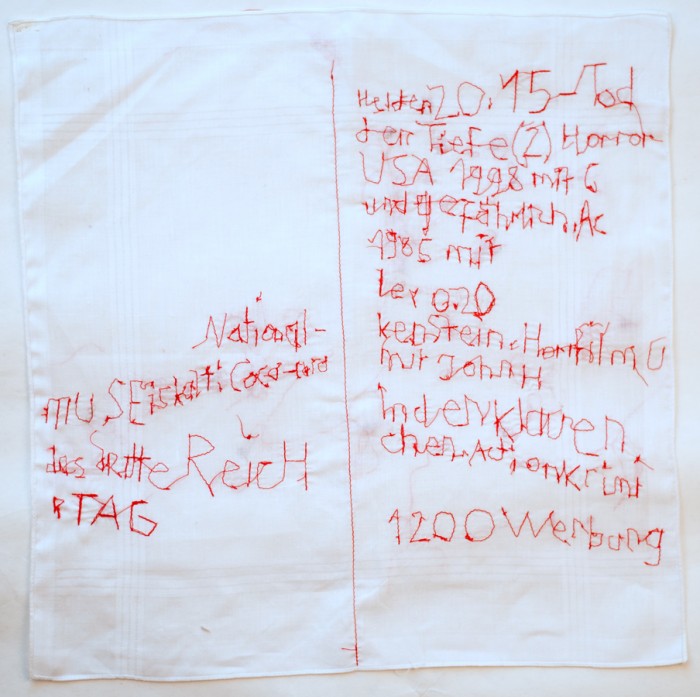 National-
MUSEiskalt: Coca-
das dritte ReicH
TAG
Helden 20.15-Tod
der Tiefe(2) Horror
USA 1998 mit G
und gefährlich.Ac
1985 mit
ler 0.20
kenstein.Horrfilm U
mit John H
In den klauen
chen.Actionkrimi
1200 Werbung